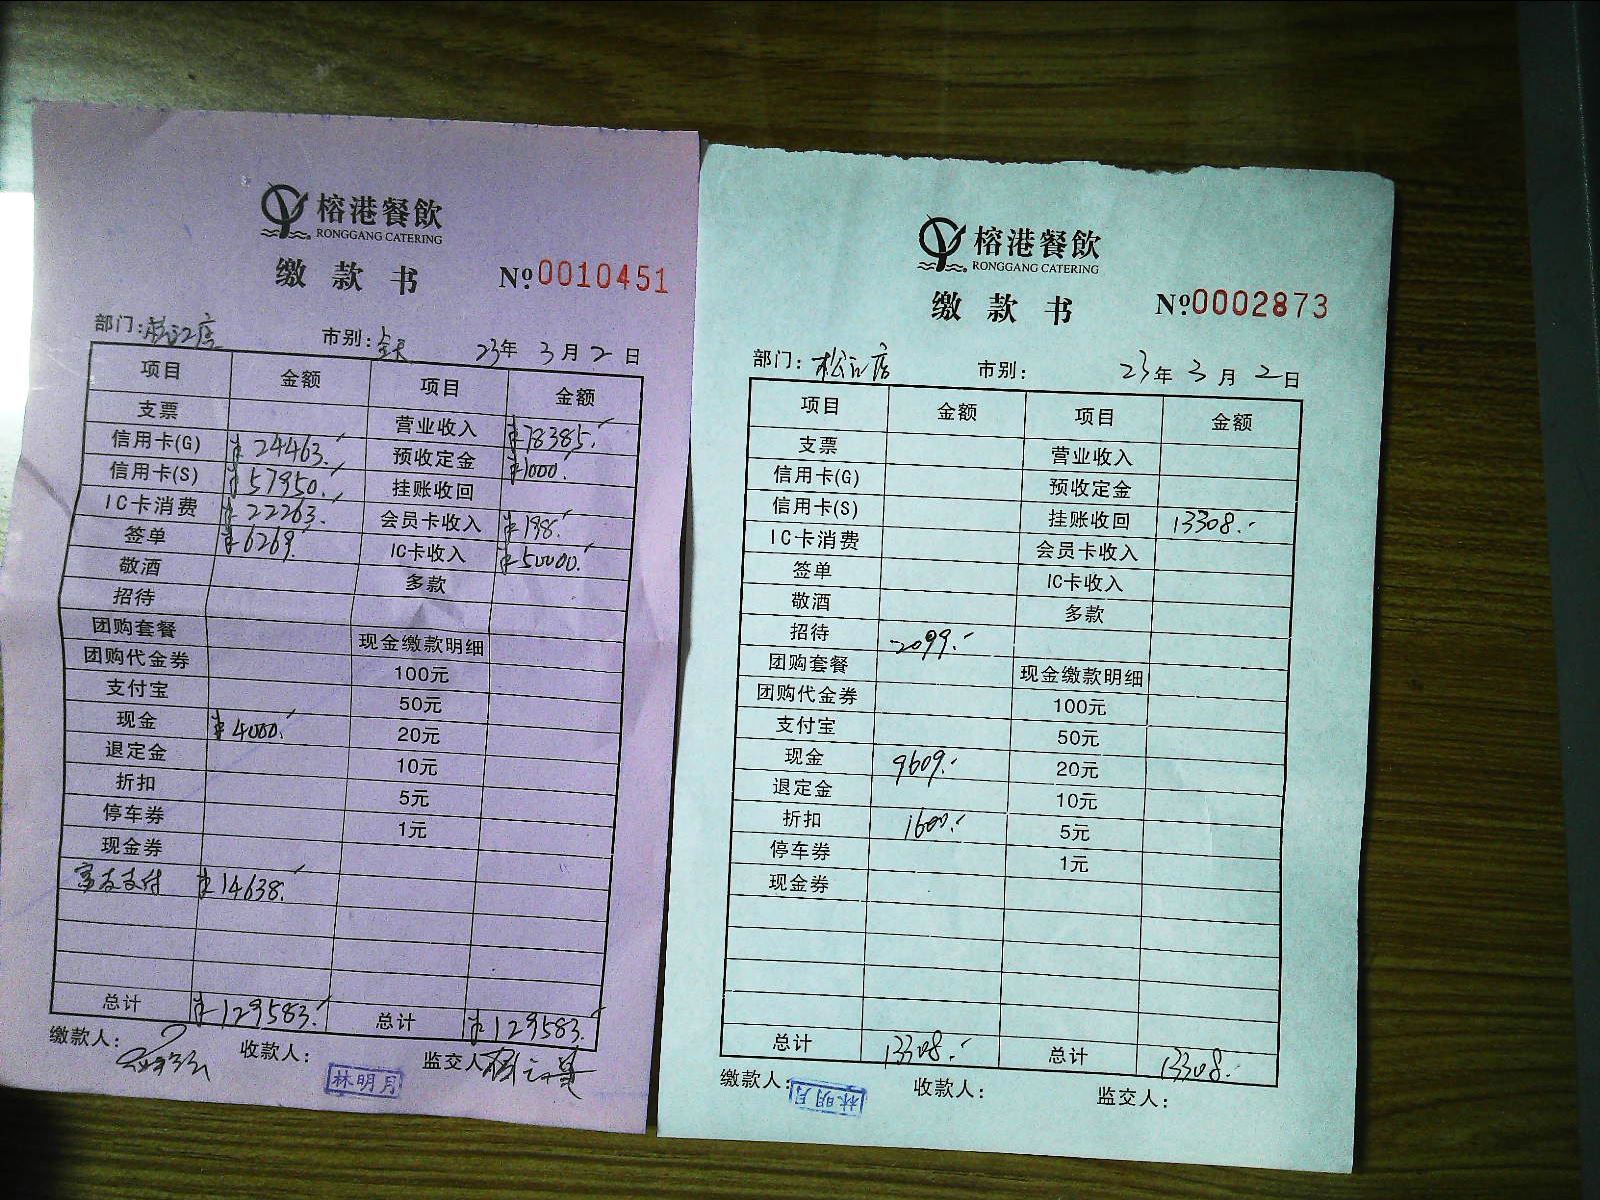 榕港餐飲
RONGGANG CATERING
缴款书 №0010451
部门:松江店 市别:全天 23年3月2日
项目 金额 项目 金额
支票 营业收入 ¥78385.-
信用卡(G) ¥24463.- 预收定金 ¥1000.-
信用卡(S) ¥57950.- 挂账收回
IC卡消费 ¥22263.- 会员卡收入 ¥198.-
签单 ¥6269.- IC卡收入 ¥50000.-
敬酒 多款
招待
团购套餐 现金缴款明细
团购代金券 100元
支付宝 50元
现金 ¥4000.- 20元
退定金 10元
折扣 5元
停车券 1元
现金券
富友支付 ¥14638.-
总计 ¥129583.- 总计 ¥129583.-
缴款人: 收款人: 监交人
林明月
榕港餐飲
RONGGANG CATERING
缴款书 №0002873
部门:松江店 市别: 23年3月2日
项目 金额 项目 金额
支票 营业收入
信用卡(G) 预收定金
信用卡(S) 挂账收回 13308.-
IC卡消费 会员卡收入
签单 IC卡收入
敬酒 多款
招待 2099.-
团购套餐 现金缴款明细
团购代金券 100元
支付宝 50元
现金 9609.- 20元
退定金 10元
折扣 1600.- 5元
停车券 1元
现金券
总计 13308.- 总计 13308.-
缴款人: 林明月 收款人: 监交人: